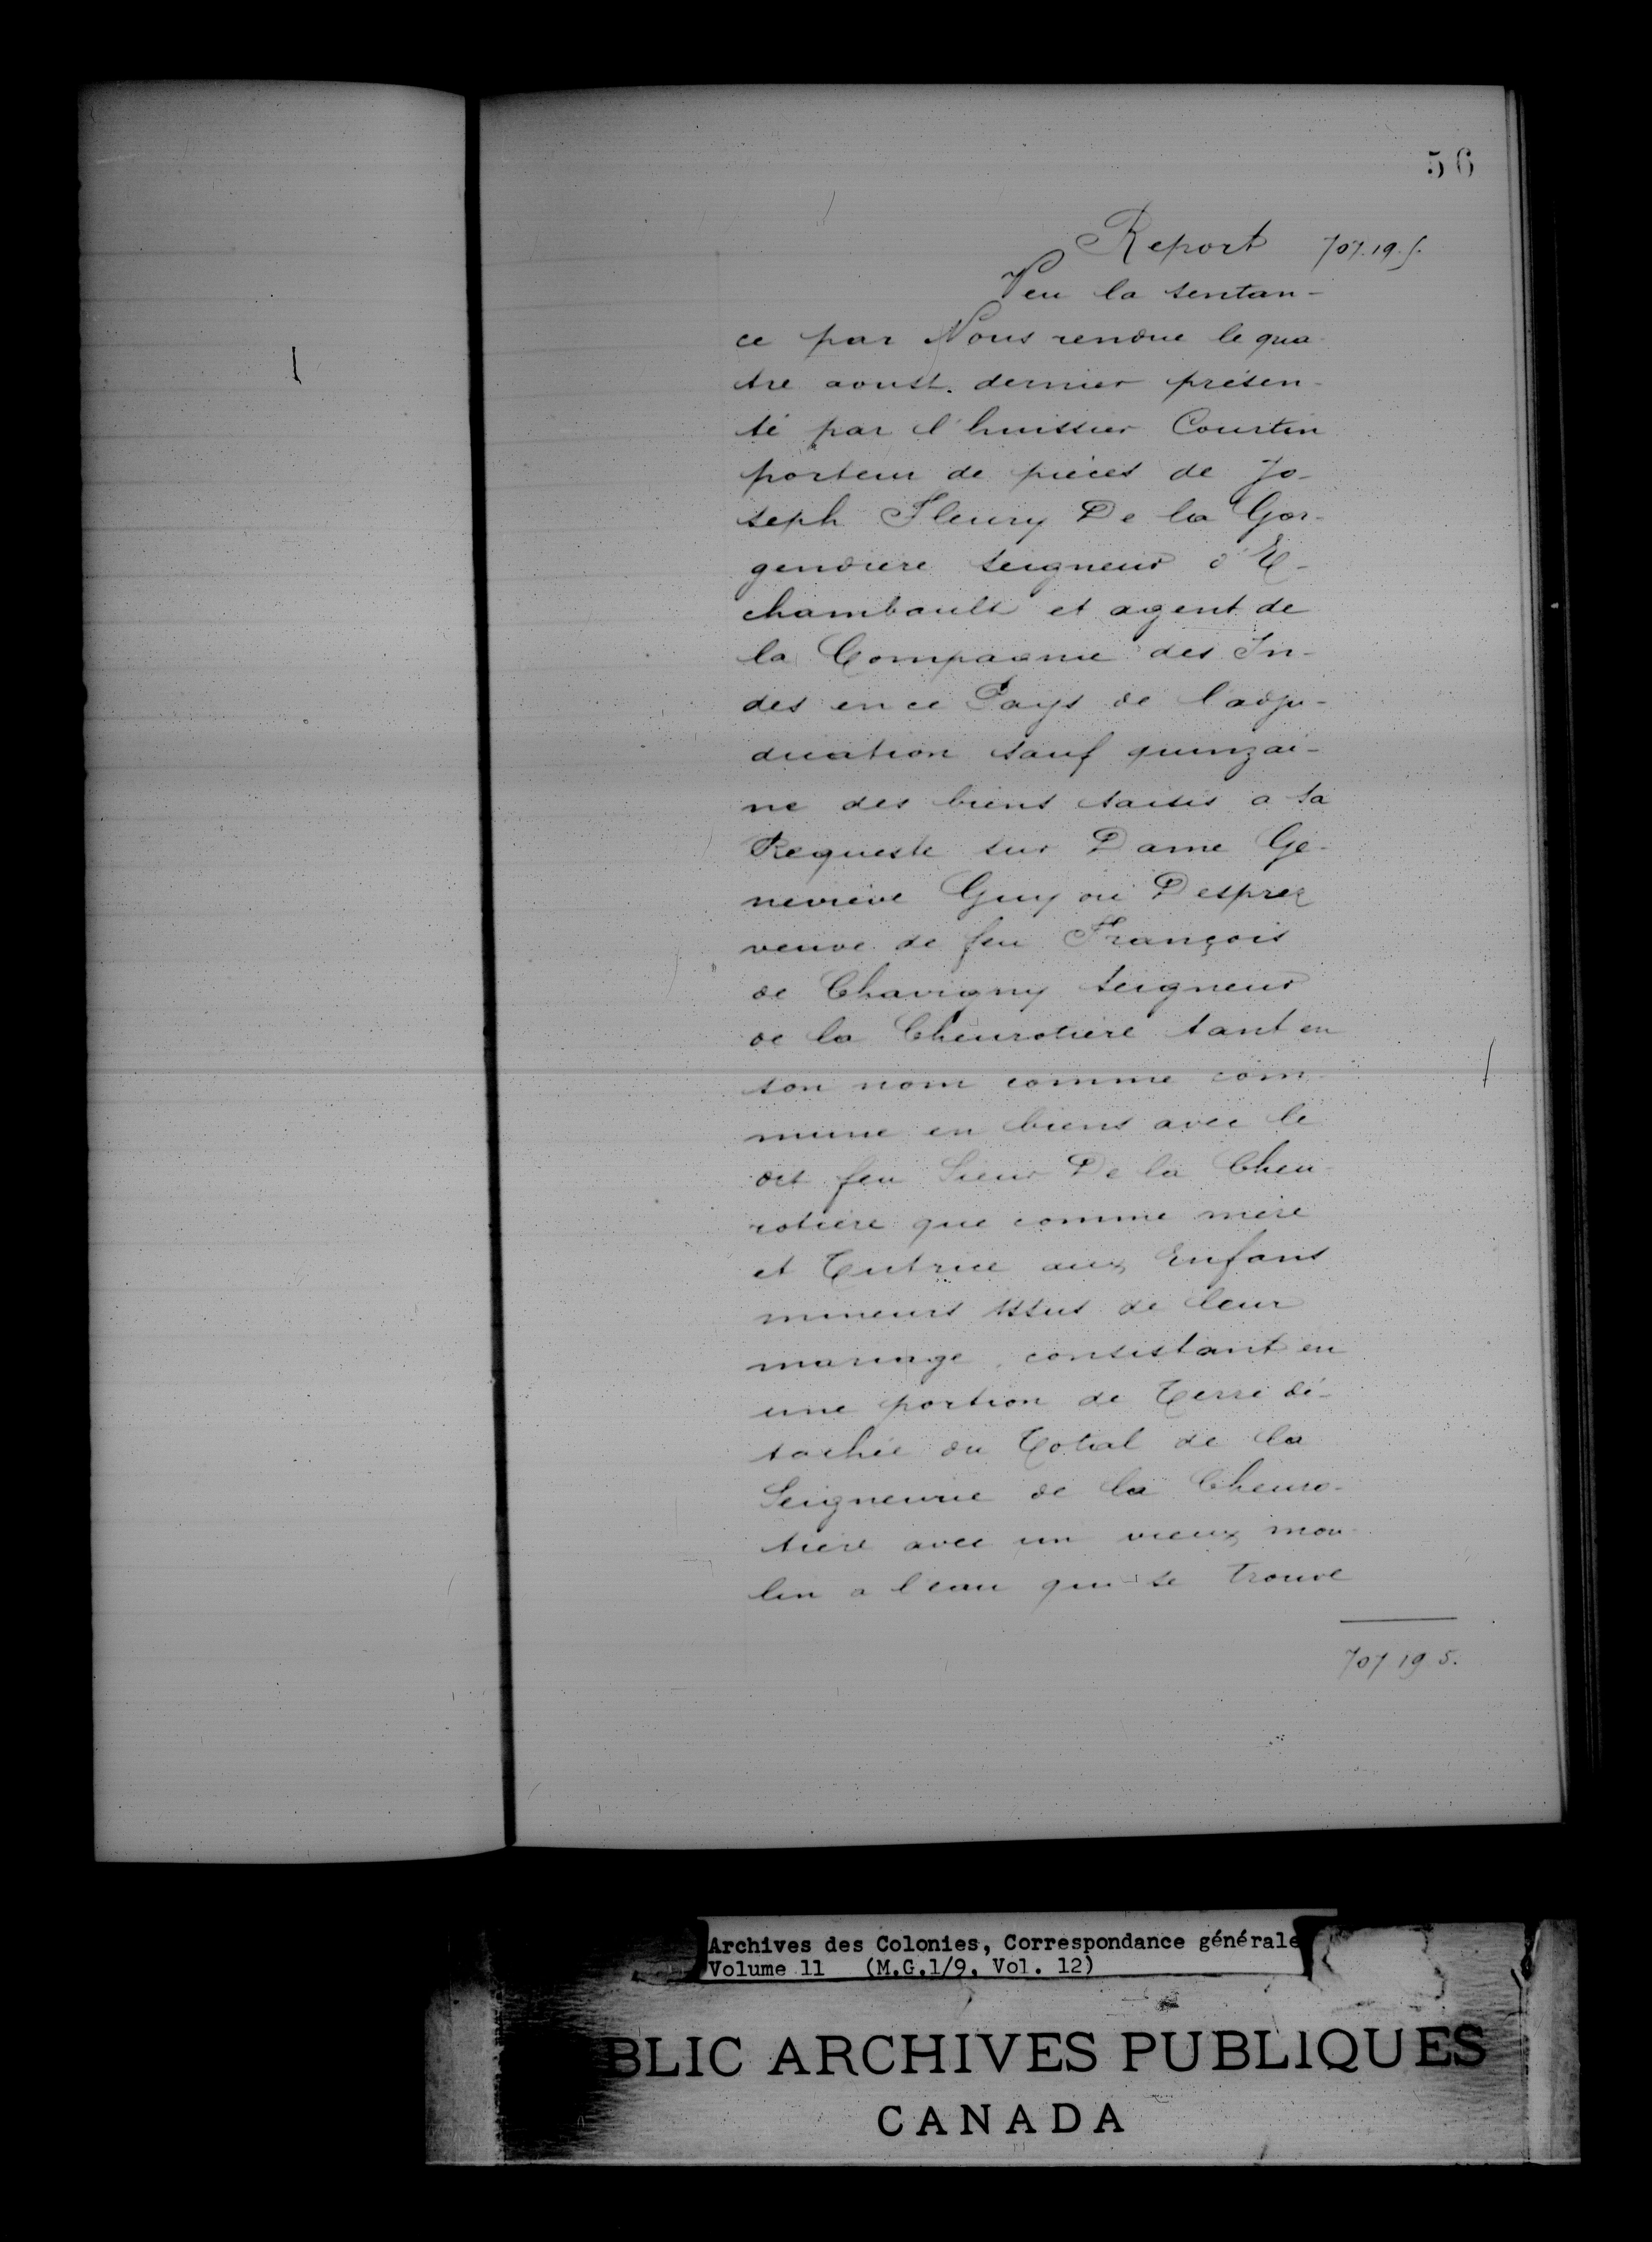 56
Report 707.19.5.
Veu la sentan-
ce par Nous rendue le qua
tre aoust dernier présen-
té par l'huissier Courtin
porteur de pièces de Jo-
seph Fleury De la Gor-
gendiere seigneur d'E-
chambault et agent de
la Compagnie des In-
des en ce Pays de l'adju-
dication sauf quinzai-
ne des biens saisis a sa
Requeste sur Dame Ge-
neviève Guyon Desprez
veuve de feu François
de Chavigny seigneur
de la Cheurotiere tant en
son nom comme com
mune en biens avec le
dit feu Sieur De la Cheu-
rotiere que comme mère
et Tutrice aux Enfans
mineurs issus de leur
mariage, consistant en
une portion de Terre dé-
tachée du Total de la
Seigneurie de la Cheuro-
tiere avec un vieux mou-
lin a l'eau qui se trouve
707 19 5.
Archives des Colonies, Correspondance générale
Volume 11 (M.G.1/9, Vol. 12)
BLIC ARCHIVES PUBLIQUES
CANADA